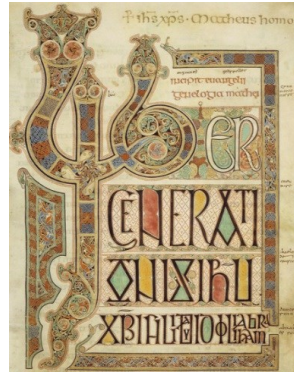 † ihs xps · Matheus homo
incipit evangelii
genelogia mathei
Liber
GENERATI
ONIS IHU
XPI FILII DAVID FILII ABRAHAM